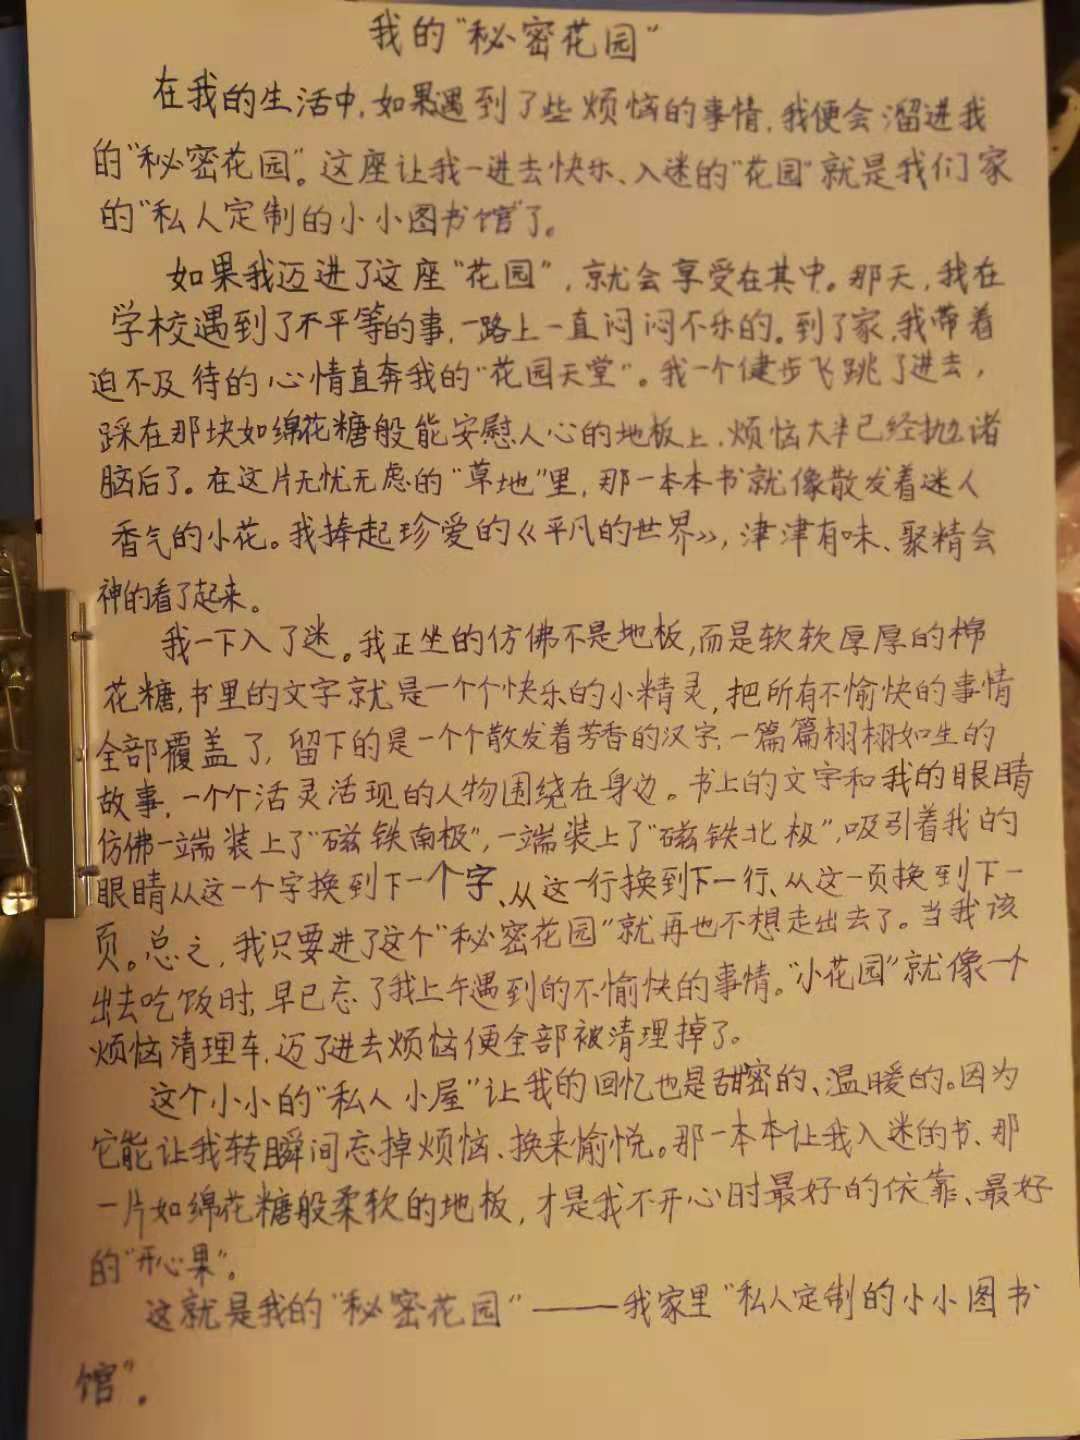 我的“秘密花园”
在我的生活中,如果遇到了些烦恼的事情,我便会溜进我
的“秘密花园”。这座让我一进去快乐、入迷的“花园”就是我们家
的“私人定制的小小图书馆”了。
如果我迈进了这座“花园”,就会享受在其中。那天,我在
学校遇到了不平等的事,一路上一直闷闷不乐的。到了家,我带着
迫不及待的心情直奔我的“花园天堂”。我一个健步飞跳了进去,
踩在那块如绵花糖般能安慰人心的地板上,烦恼大半已经抛诸
脑后了。在这片无忧无虑的“草地”里,那一本本书就像散发着迷人
香气的小花。我捧起珍爱的《平凡的世界》,津津有味、聚精会
神的看了起来。
我一下入了迷。我正坐的仿佛不是地板,而是软软厚厚的棉
花糖,书里的文字就是一个个快乐的小精灵,把所有不愉快的事情
全部覆盖了,留下的是一个个散发着芳香的汉字,一篇篇栩栩如生的
故事,一个个活灵活现的人物围绕在身边。书上的文字和我的眼睛
仿佛一端装上了“磁铁南极”,一端装上了“磁铁北极”,吸引着我的
眼睛从这一个字换到下一个字、从这一行换到下一行、从这一页换到下一
页。总之,我只要进了这个“秘密花园”就再也不想走出去了。当我该
出去吃饭时,早已忘了我上午遇到的不愉快的事情。“小花园”就像一个
烦恼清理车,迈了进去烦恼便全部被清理掉了。
这个小小的“私人小屋”让我的回忆也是甜密的、温暖的。因为
它能让我转瞬间忘掉烦恼、换来愉悦。那一本本让我入迷的书、那
一片如绵花糖般柔软的地板,才是我不开心时最好的依靠、最好
的“开心果”。
这就是我的“秘密花园”——我家里“私人定制的小小图书
馆”。